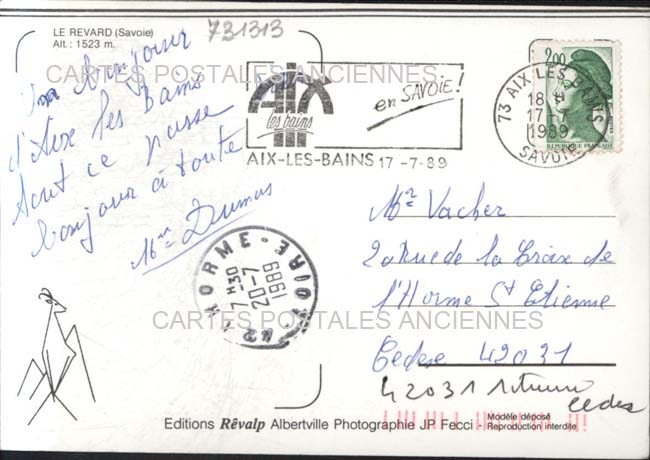 LE REVARD (Savoie)
Alt. : 1523 m.
731313
bonjour
d'Aix les Bains
tout ce passe
bonjour à toute
Mme Dumas
CARTES POSTALES ANCIENNES
AIX
les bains
en SAVOIE!
AIX-LES-BAINS 17 -7-89
73 AIX LES BAINS
18 H
17
1989
SAVOIE
2,00
REPUBLIQUE FRANÇAISE
L'HORME - 42 LOIRE
7 H30
20-7
1989
Mme Vacher
20 Rue de la Croix de
l'Horme St Etienne
Cedex 42031
CARTES POSTALES ANCIENNES
42031 St Etienne
cedex
Editions Rêvalp Albertville Photographie JP Fecci - Modèle déposé
Reproduction interdite